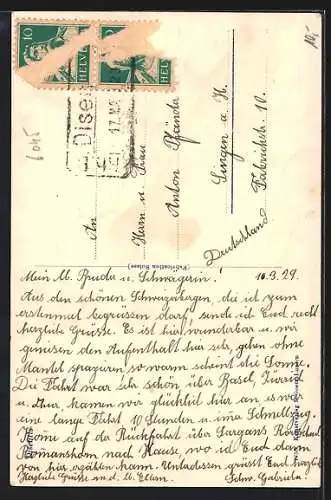 10
10
HELV
HELV
Disen
17.
6045
10,-
An
Herrn u. Frau
Anton Pfändler
Singen a. H.
Fabrikstr. 10.
Deutschland
(Fabrication Suisse)
Mein lb. Bruder u. Schwägerin! 10.3.29.
Aus den schönen Schweizerbergen, die ich zum
erstenmal begrüssen darf, sende ich Euch recht
herzliche Grüsse. Es ist hier wunderbar u. wir
geniesen den Aufenthalt hier sehr, gehen ohne
Mantel spazieren so warm scheint die Sonne.
Die Fahrt war sehr schön über Basel, Zürich
u. Chur, kamen wir glücklich hier an, es war
eine lange Fahrt 10 Stunden u. im Schnellzug.
Kome auf der Rückfahrt über Sargans Rorschach
Romanshorn nach Hause, wo ich Euch dann
von hier erzählen kann. Unterdessen grüsst Euch herzlich
Herzliche Grüsse an d. lb. Eltern. Schw. Gabriela.